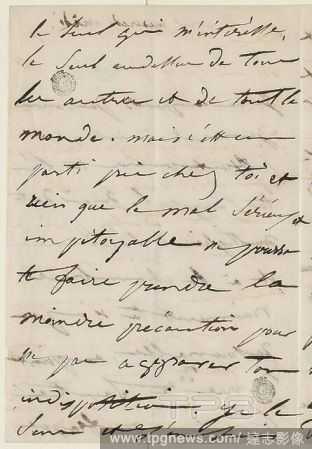 le seul qui m'intéresse,
le seul au dessus de tous
les autres et de tout le
monde. mais c'est un
parti pris chez toi et
rien que le mal sérieux et
impitoyable ne pourra
te faire prendre la
moindre précaution pour
ne pas aggraver ton
indisposition. je le
sens et
TPG
www.tpgnews.com/達志影像